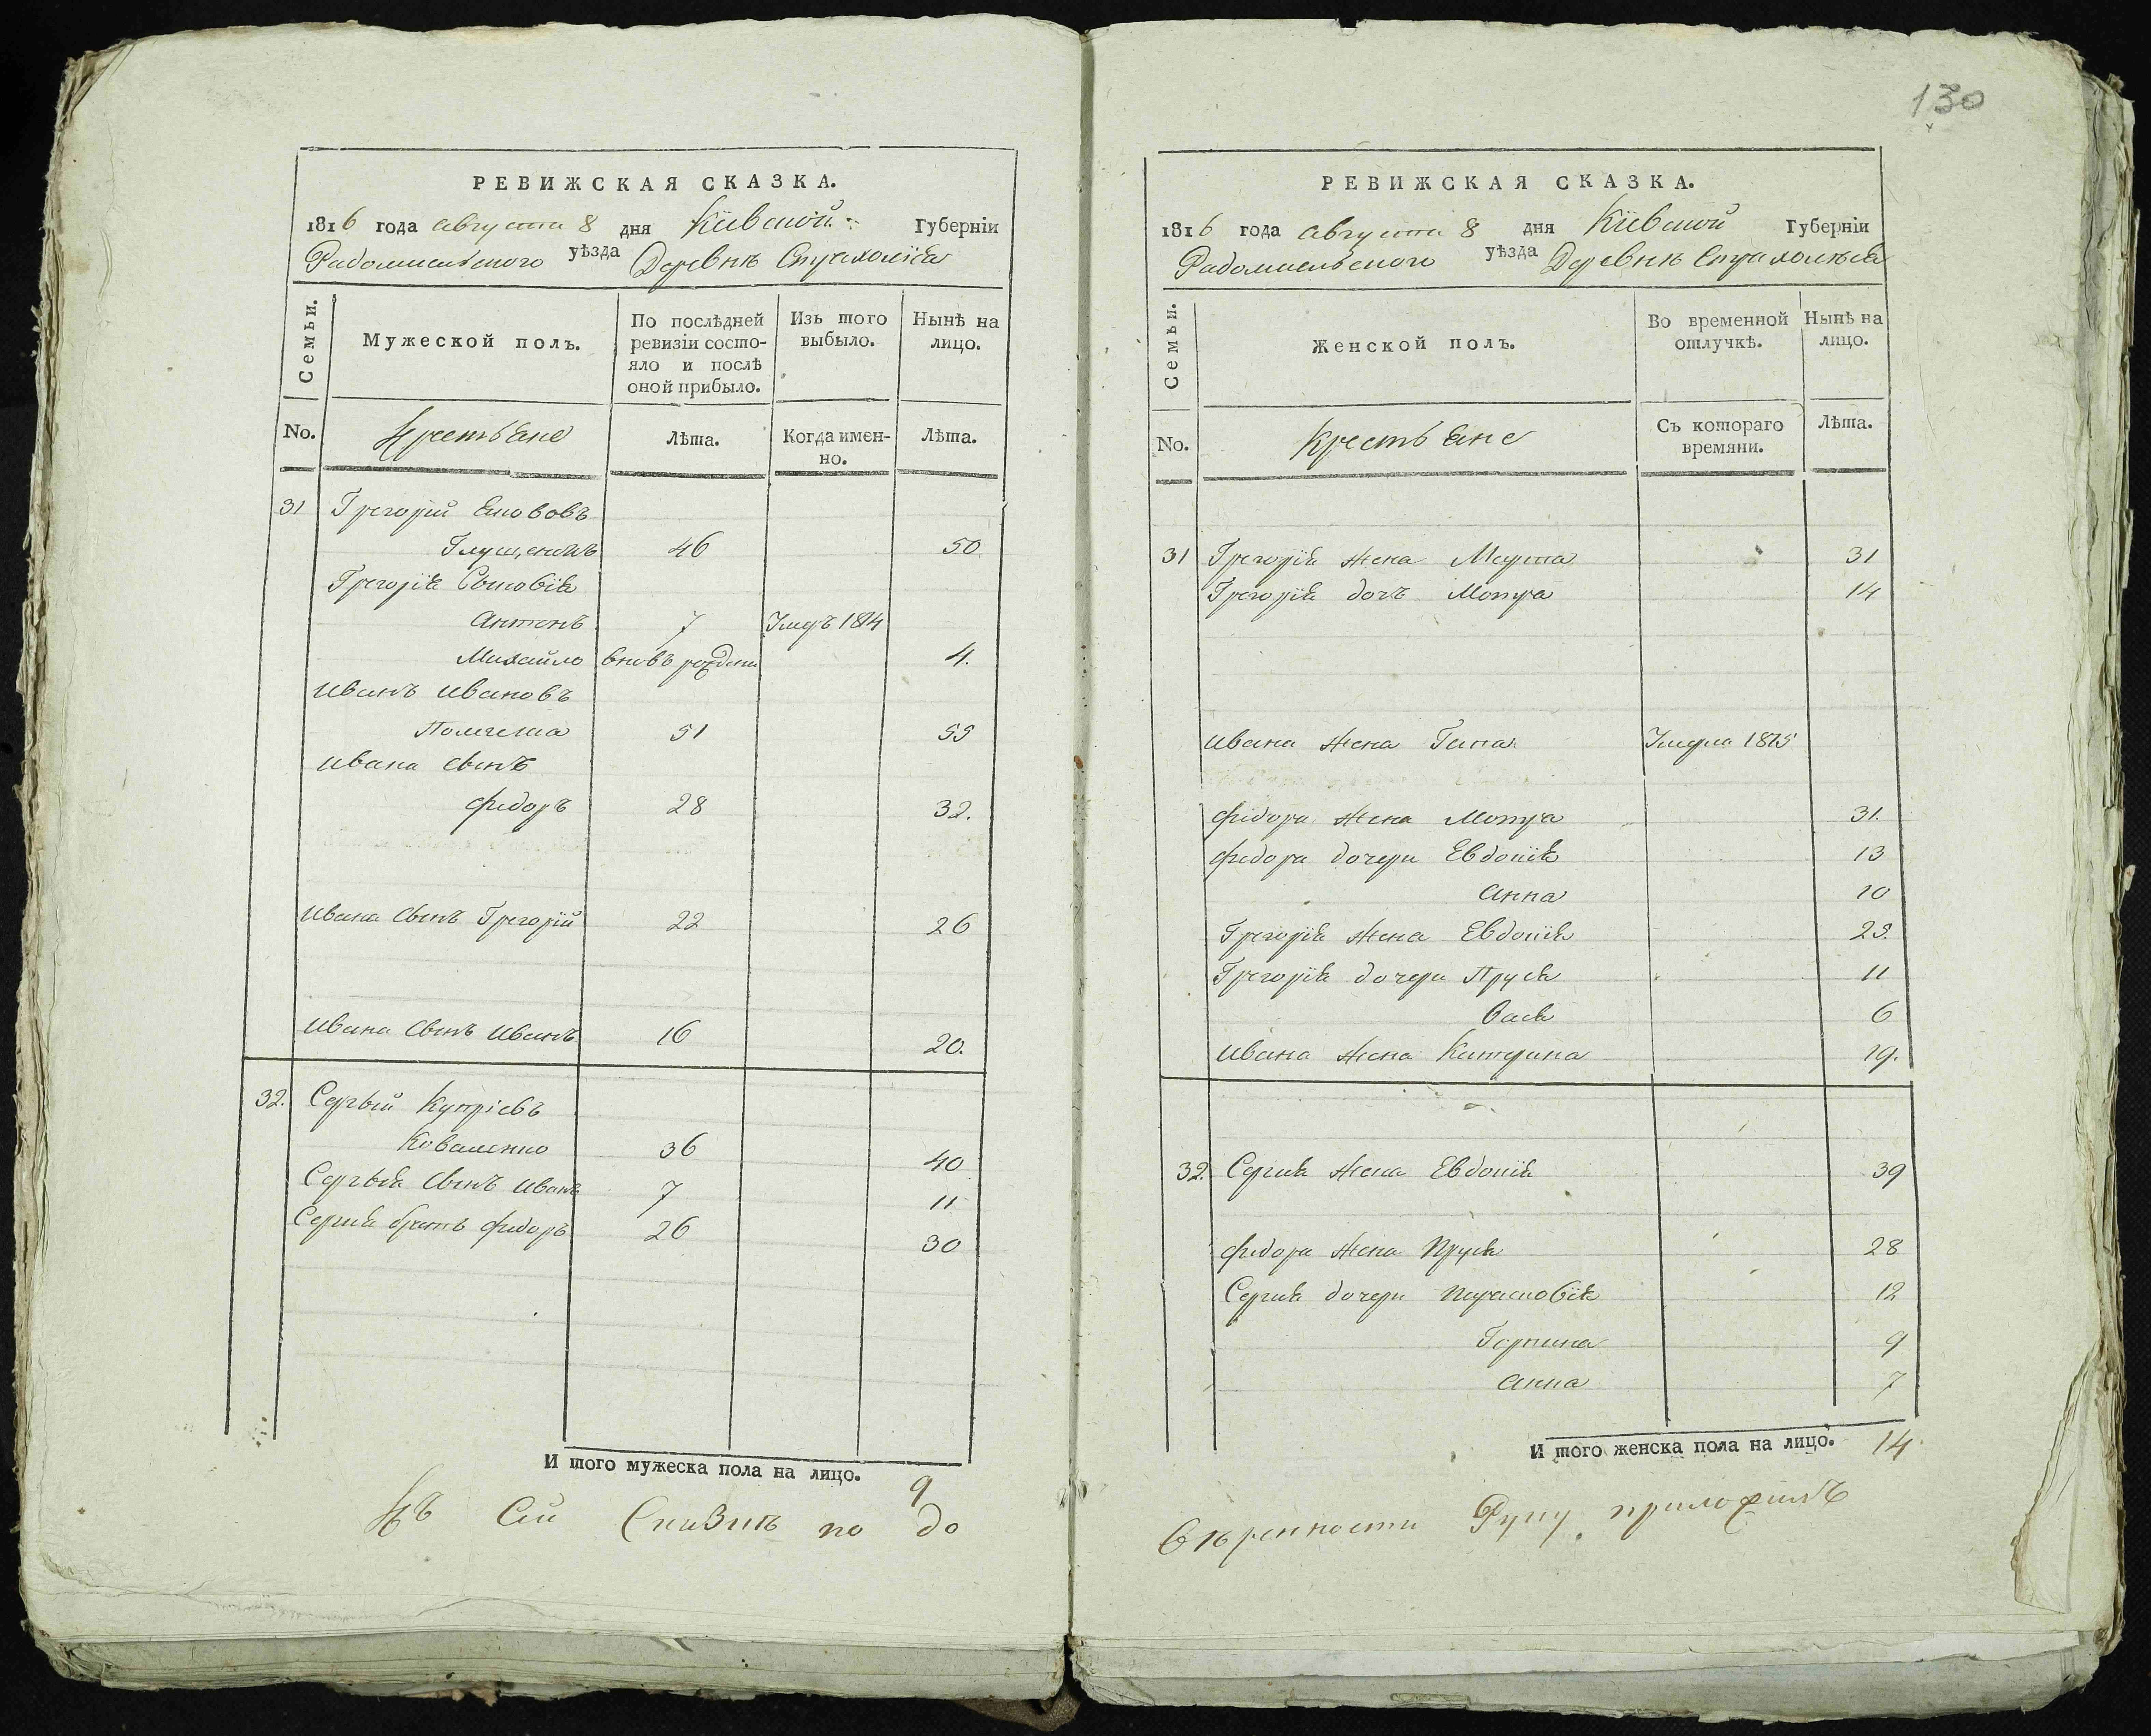 130
РЕВИЖСКАЯ СКАЗКА.
1816 года августа 8 дня Кіевской Губерніи
Радомисльского уѣзда Деревнѣ Страхолѣся
Семьи. Мужеской полъ. По послѣдней ревизіи состояло и послѣ оной прибыло. Изъ того выбыло. Нынѣ на лицо.
No. Крестьяне Лѣта. Когда именно. Лѣта.
31 Григорій
Глущенокъ 46 50
Григорія Сыновія
Антонъ 7 Умеръ 1814
Михайло вновь рожден 4.
Иванъ Ивановъ
51 55
Ивана сынъ
Федоръ 28 32.
Ивана Сынъ Григорій 22 26
Ивана Сынъ Иванъ 16 20.
32. Сергѣй Купріевъ
Коваленко 36 40
Сергѣя Сынъ Иванъ 7 11
Сергия братъ Федоръ 26 30
И того мужеска пола на лицо. 9
Къ Сей Сказкѣ по до
РЕВИЖСКАЯ СКАЗКА.
1816 года августа 8 дня Кіевской Губерніи
Радомисльского уѣзда Деревнѣ Страхолѣся
Семьи. Женской полъ. Во временной отлучкѣ. Нынѣ на лицо.
No. Крестьяне Съ котораго времяни. Лѣта.
31 Григорія жена Марта 31
Григорія дочь Мотря 14
Ивана жена Гапа Умерла 1815
Федора жена Мотря 31.
Федора дочери Евдокія 13
Анна 10
Григорія жена Евдокія 25.
Григорія дочери Пруся 11
Вася 6
Ивана жена Катерина 19.
32. Сергия жена Евдокія 39
Федора жена Пруся 28
Сергия дочери Парасковія 12
Горпина 9
Анна 7
И того женска пола на лицо. 14
вѣренности Руку приложилъ